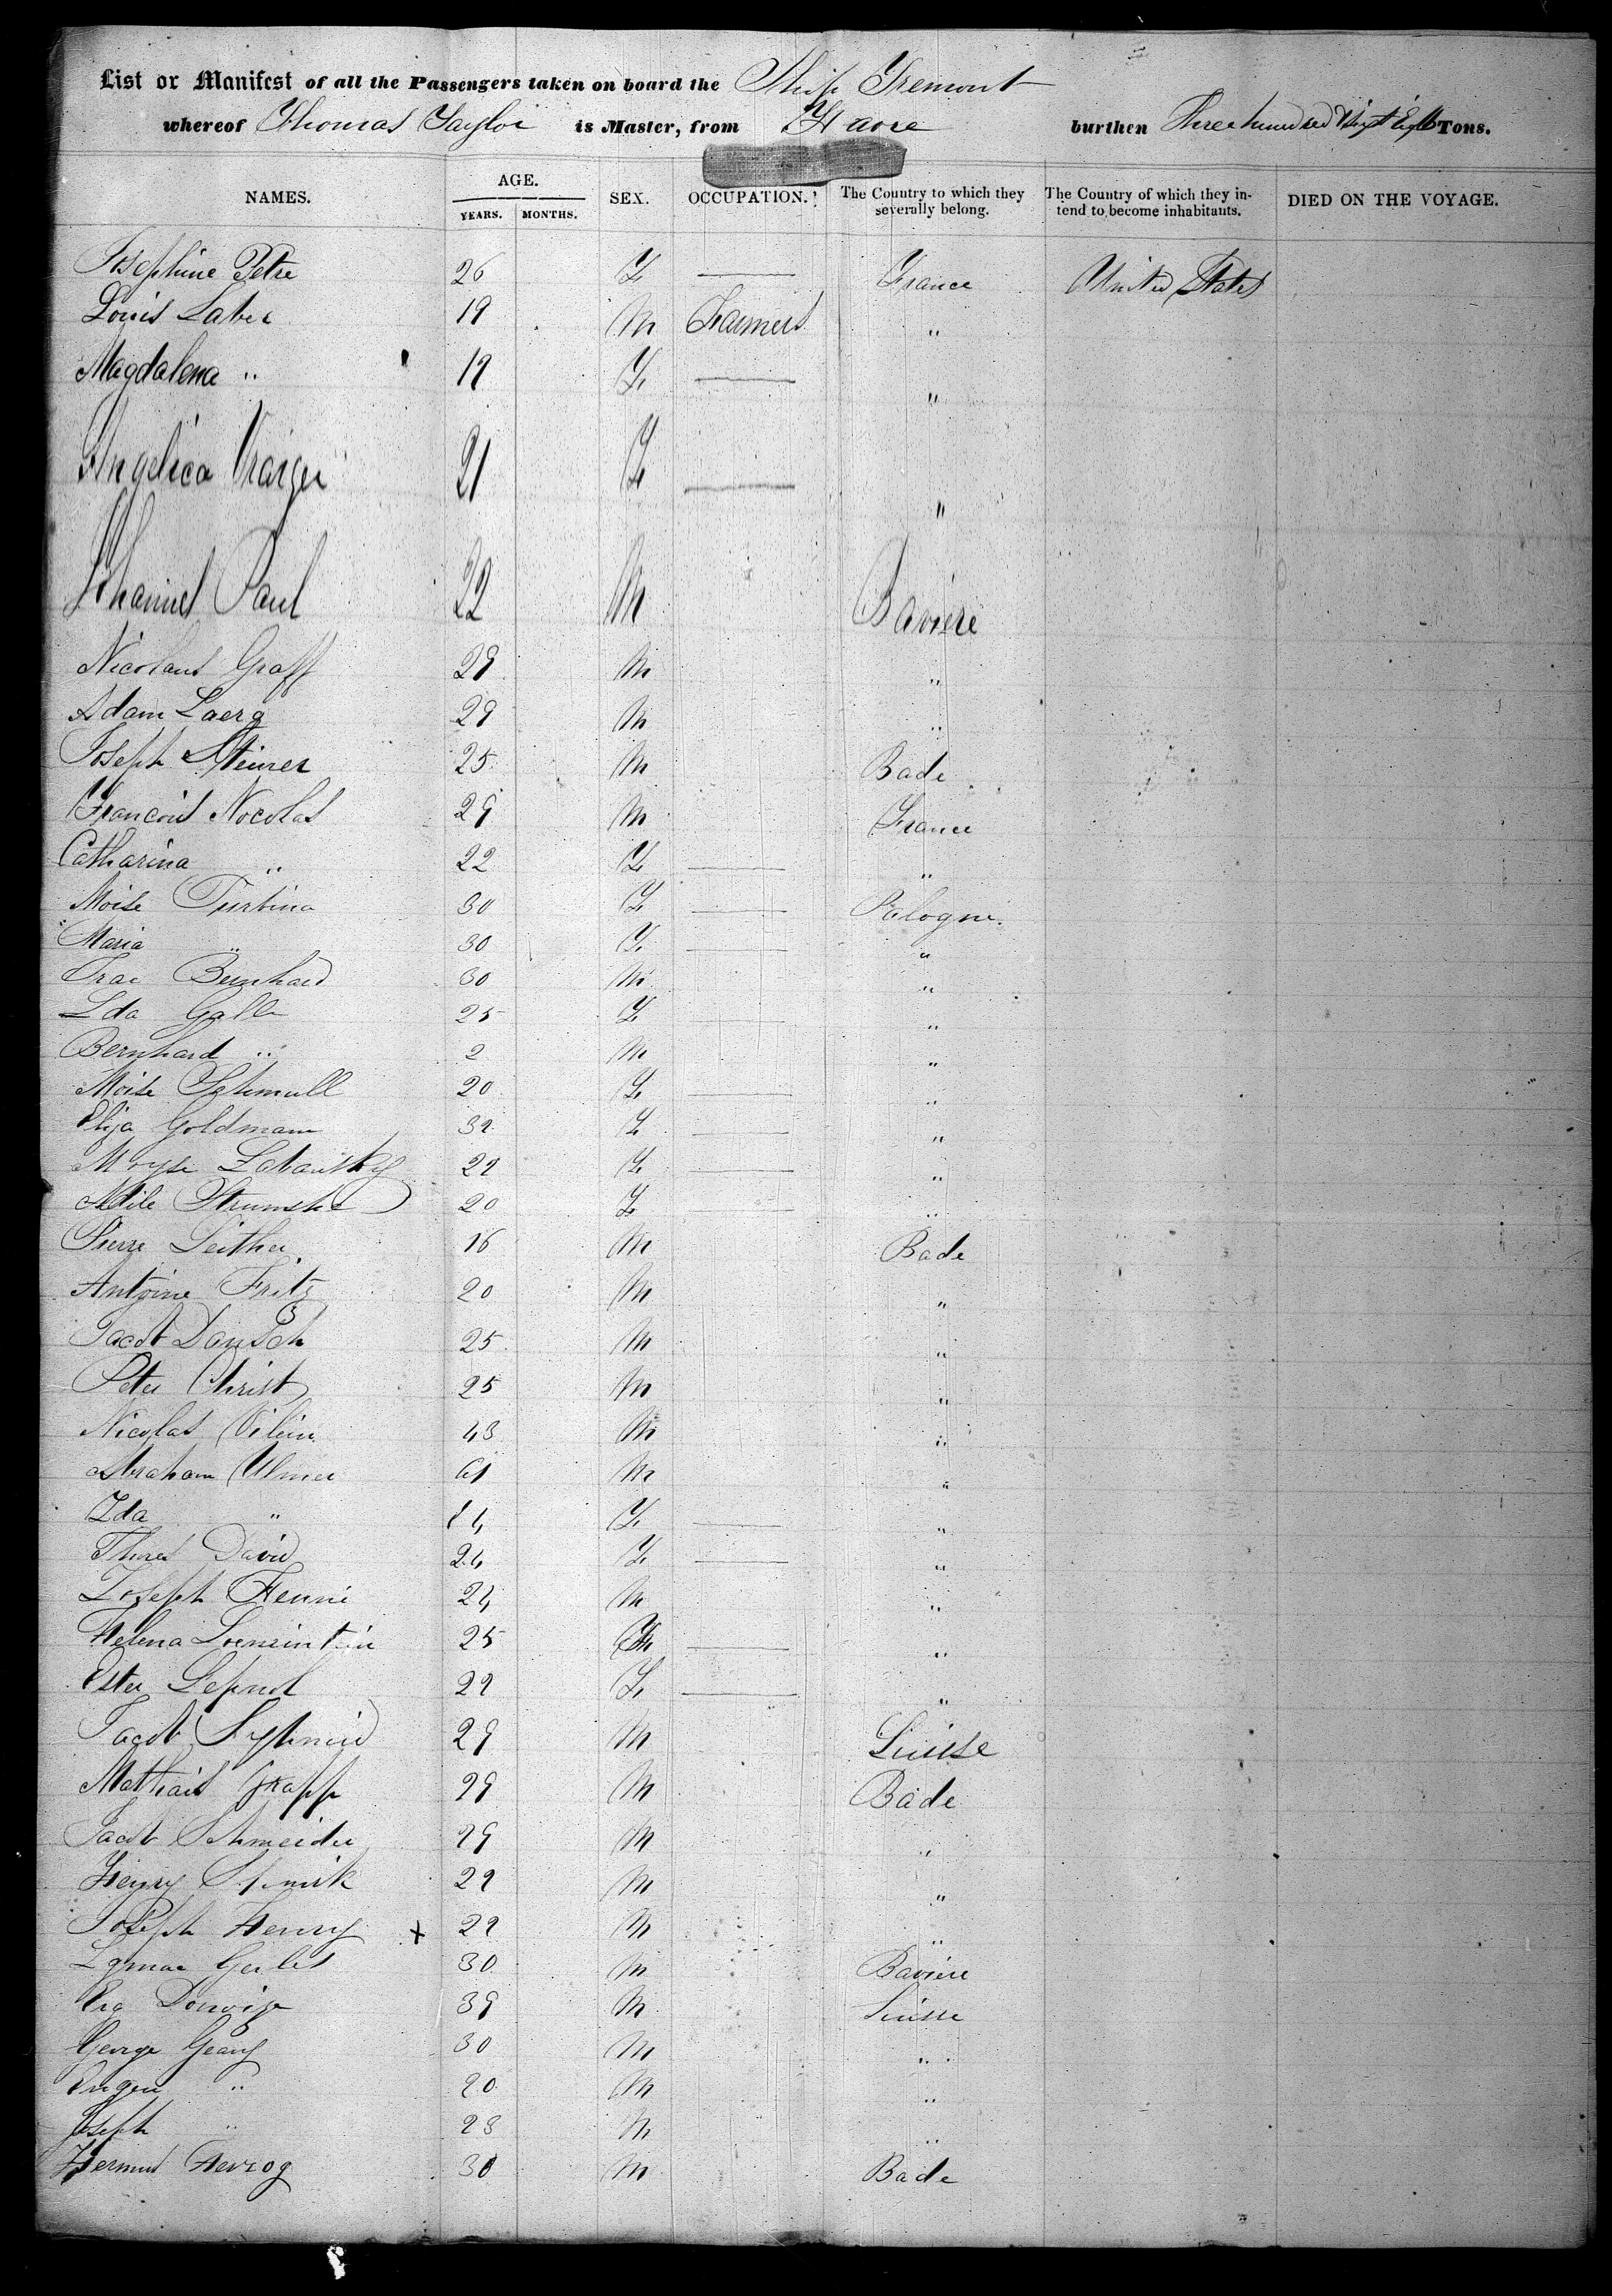 List or Manifest of all the Passengers taken on board the Ship Tremont
whereof Thomas Taylor is Master, from Havre burthen Three hundred & Sixty Eight Tons.
NAMES. AGE. YEARS. MONTHS. SEX. OCCUPATION. The Country to which they severally belong. The Country of which they intend to become inhabitants. DIED ON THE VOYAGE.
Josephine Petre 26 F — France United States
Louis Laber 19 M Farmers "
Magdalena " 19 F — "
Angelica 21 F — "
Paul 22 M Baviere
Nicolaus Graff 29 M "
Adam Laerg 29 M "
Joseph Steiner 25 M Bade
Francois Nocolas 29 M France
Catharina " 22 F — "
Moise Turbino 30 F — Pologne
Maria " 30 F — "
Bernhard 30 M "
Ida Galle 25 F — "
Bernhard " 2 M "
Moise Schmull 20 F — "
Elija Goldmann 32 F — "
Moyse 22 F — "
20 F — "
Pierre Leither 16 M Bade
Antoine Fritz 20 M "
Jacob 25 M "
Peter Christ 25 M "
Nicolas 43 M "
Abraham Ulmer 61 M "
Ida " 14 F — "
Theres David 24 F — "
Joseph Henni 24 M "
Helena 25 F — "
Ester 22 F — "
Jacob 29 M Suisse
Mathais Grapp 29 M Bade
Jacob Schneider 29 M "
Henry 29 M "
Joseph Henry x 29 M "
30 M Baviere
39 M Suisse
George Geany 30 M "
" 20 M "
Joseph " 23 M "
Herzog 30 M Bade